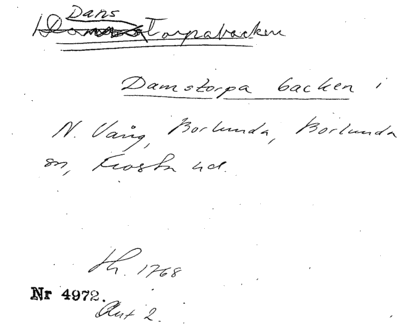 Dans
Torpabacken
Damstorpa backen i
N. Vång, Borlunda, Borlunda
sn, Frosta hd.
1768
Nr 4972.
Akt 2.